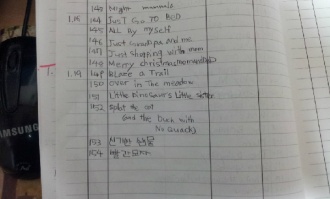 SAMSUNG
143 Night
1.18 144 JuST GO TO BED
145 ALL By myself
146 Just Grandpa and me
147 Just shopping with mom
148 merry christmas mom and dad
T. 1.19 149 Blaze a Trail
150 over in The meadow
151 Little Dinosaur's Little sister
152 Split the cat
(and the Duck with
No Quack)
153 신기한
154 빨간